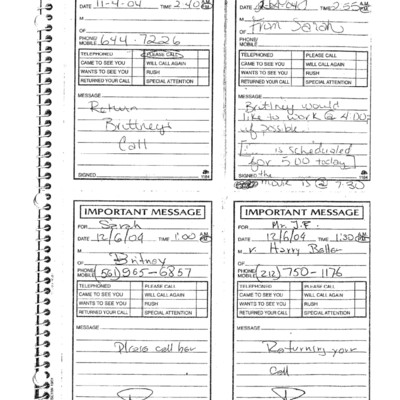 DATE 11-4-04 TIME 2:40
M
OF
PHONE/
MOBILE 644-7226
TELEPHONED PLEASE CALL
CAME TO SEE YOU WILL CALL AGAIN
WANTS TO SEE YOU RUSH
RETURNED YOUR CALL SPECIAL ATTENTION
MESSAGE
Return
Brittneys
Call
SIGNED 1184
DATE TIME 2:55
M
OF From Sarah
PHONE/
MOBILE
TELEPHONED PLEASE CALL
CAME TO SEE YOU WILL CALL AGAIN
WANTS TO SEE YOU RUSH
RETURNED YOUR CALL SPECIAL ATTENTION
MESSAGE
Brittney would
like to work @ 4:00p
if possible.
is scheduled
for 5:00 today
SIGNED the 1184
movie is @ 7:30
IMPORTANT MESSAGE
FOR Sarah
DATE 12/6/04 TIME 1:00
M
OF Britney
PHONE/
MOBILE (561) 965-6857
TELEPHONED PLEASE CALL
CAME TO SEE YOU WILL CALL AGAIN
WANTS TO SEE YOU RUSH
RETURNED YOUR CALL SPECIAL ATTENTION
MESSAGE
Please call her
IMPORTANT MESSAGE
FOR Mr. J.E.
DATE 12/6/04 TIME 1:30
M r. Harry Beller
OF
PHONE/
MOBILE (212) 750-1176
TELEPHONED PLEASE CALL
CAME TO SEE YOU WILL CALL AGAIN
WANTS TO SEE YOU RUSH
RETURNED YOUR CALL SPECIAL ATTENTION
MESSAGE
Returning your
call